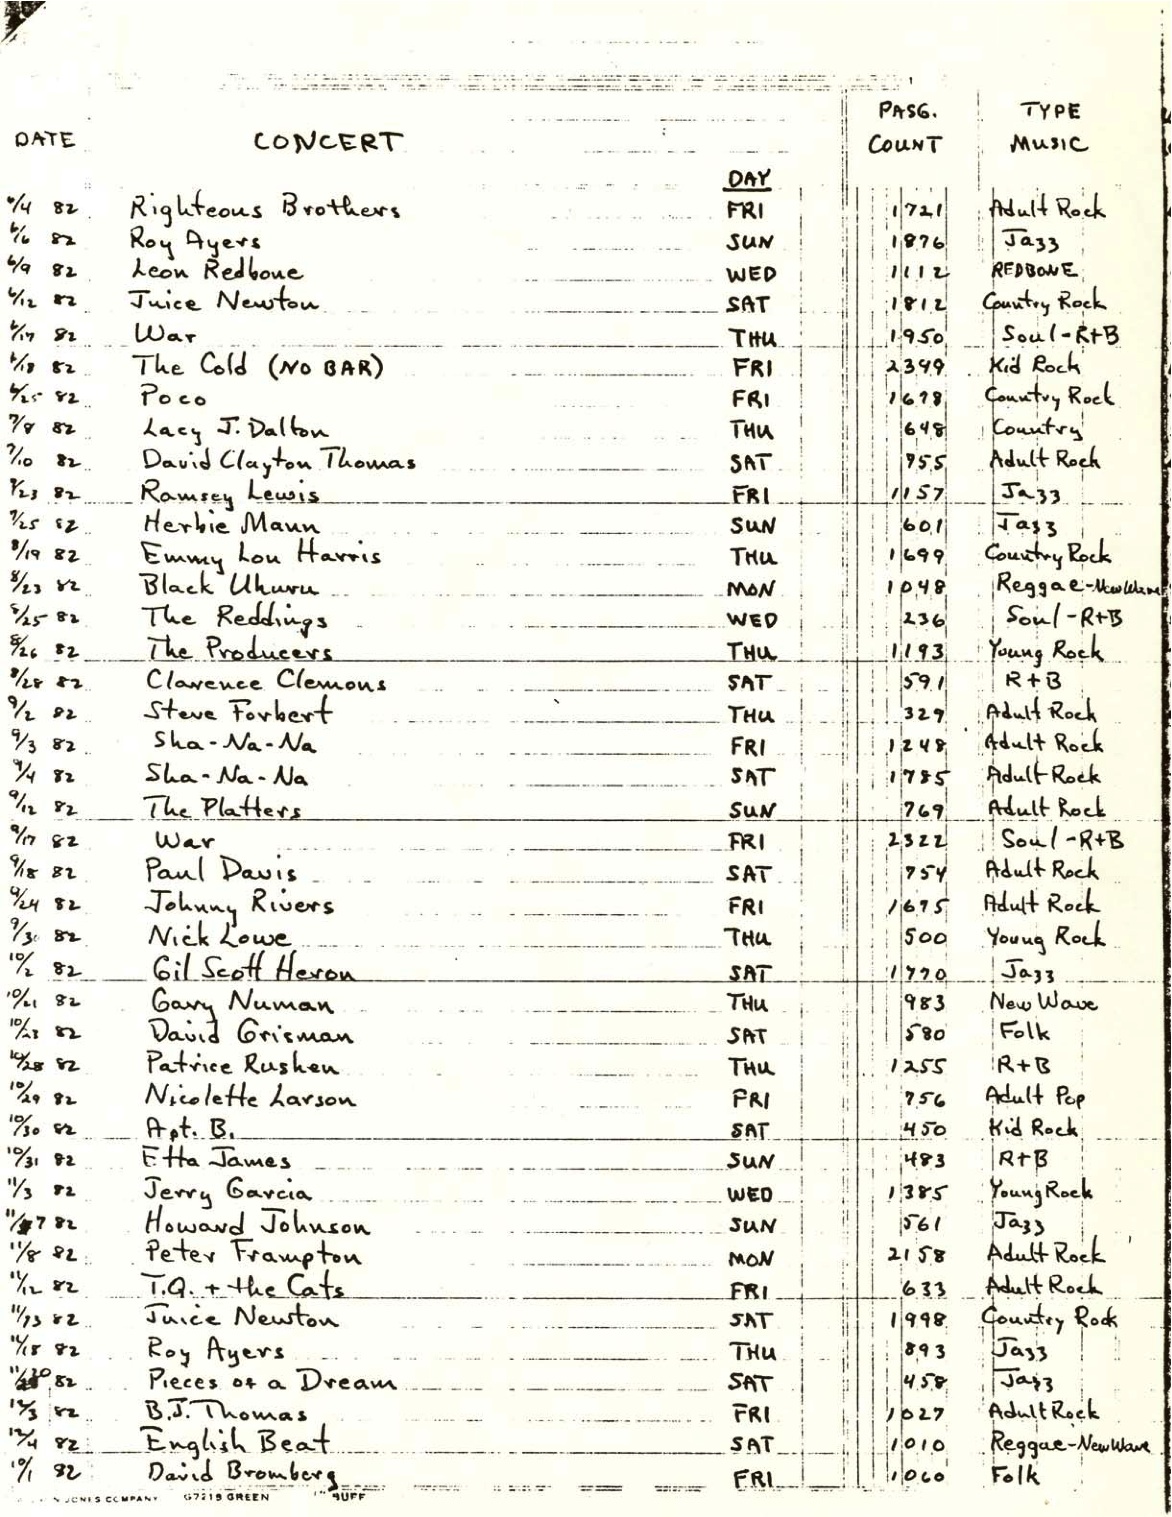 PASG. TYPE
DATE CONCERT COUNT MUSIC
DAY
6/4 82 Righteous Brothers FRI 1721 Adult Rock
6/6 82 Roy Ayers SUN 1876 Jazz
6/9 82 Leon Redbone WED 1112 REDBONE
6/12 82 Juice Newton SAT 1812 Country Rock
6/17 82 War THU 1950 Soul-R+B
6/18 82 The Cold (NO BAR) FRI 2399 Kid Rock
6/25 82 Poco FRI 1678 Country Rock
7/8 82 Lacy J. Dalton THU 648 Country
7/10 82 David Clayton Thomas SAT 755 Adult Rock
7/23 82 Ramsey Lewis FRI 1157 Jazz
7/25 82 Herbie Mann SUN 601 Jazz
8/19 82 Emmy Lou Harris THU 1699 Country Rock
8/23 82 Black Uhuru MON 1048 Reggae-New Wave
8/25 82 The Reddings WED 236 Soul-R+B
8/26 82 The Producers THU 1193 Young Rock
8/28 82 Clarence Clemons SAT 591 R+B
9/2 82 Steve Forbert THU 329 Adult Rock
9/3 82 Sha-Na-Na FRI 1248 Adult Rock
9/4 82 Sha-Na-Na SAT 1785 Adult Rock
9/12 82 The Platters SUN 769 Adult Rock
9/17 82 War FRI 2322 Soul-R+B
9/18 82 Paul Davis SAT 754 Adult Rock
9/24 82 Johnny Rivers FRI 1675 Adult Rock
9/30 82 Nick Lowe THU 500 Young Rock
10/2 82 Gil Scott Heron SAT 1770 Jazz
10/21 82 Gary Numan THU 983 New Wave
10/23 82 David Grisman SAT 580 Folk
10/28 82 Patrice Rushen THU 1255 R+B
10/29 82 Nicolette Larson FRI 756 Adult Pop
10/30 82 Apt. B. SAT 450 Kid Rock
10/31 82 Etta James SUN 483 R+B
11/3 82 Jerry Garcia WED 1385 Young Rock
11/7 82 Howard Johnson SUN 561 Jazz
11/8 82 Peter Frampton MON 2158 Adult Rock
11/12 82 T.Q. + the Cats FRI 633 Adult Rock
11/13 82 Juice Newton SAT 1998 Country Rock
11/18 82 Roy Ayers THU 893 Jazz
11/20 82 Pieces of a Dream SAT 458 Jazz
12/3 82 B.J. Thomas FRI 1027 Adult Rock
12/4 82 English Beat SAT 1010 Reggae-New Wave
10/1 82 David Bromberg FRI 1060 Folk
JONES COMPANY G7219 GREEN BUFF